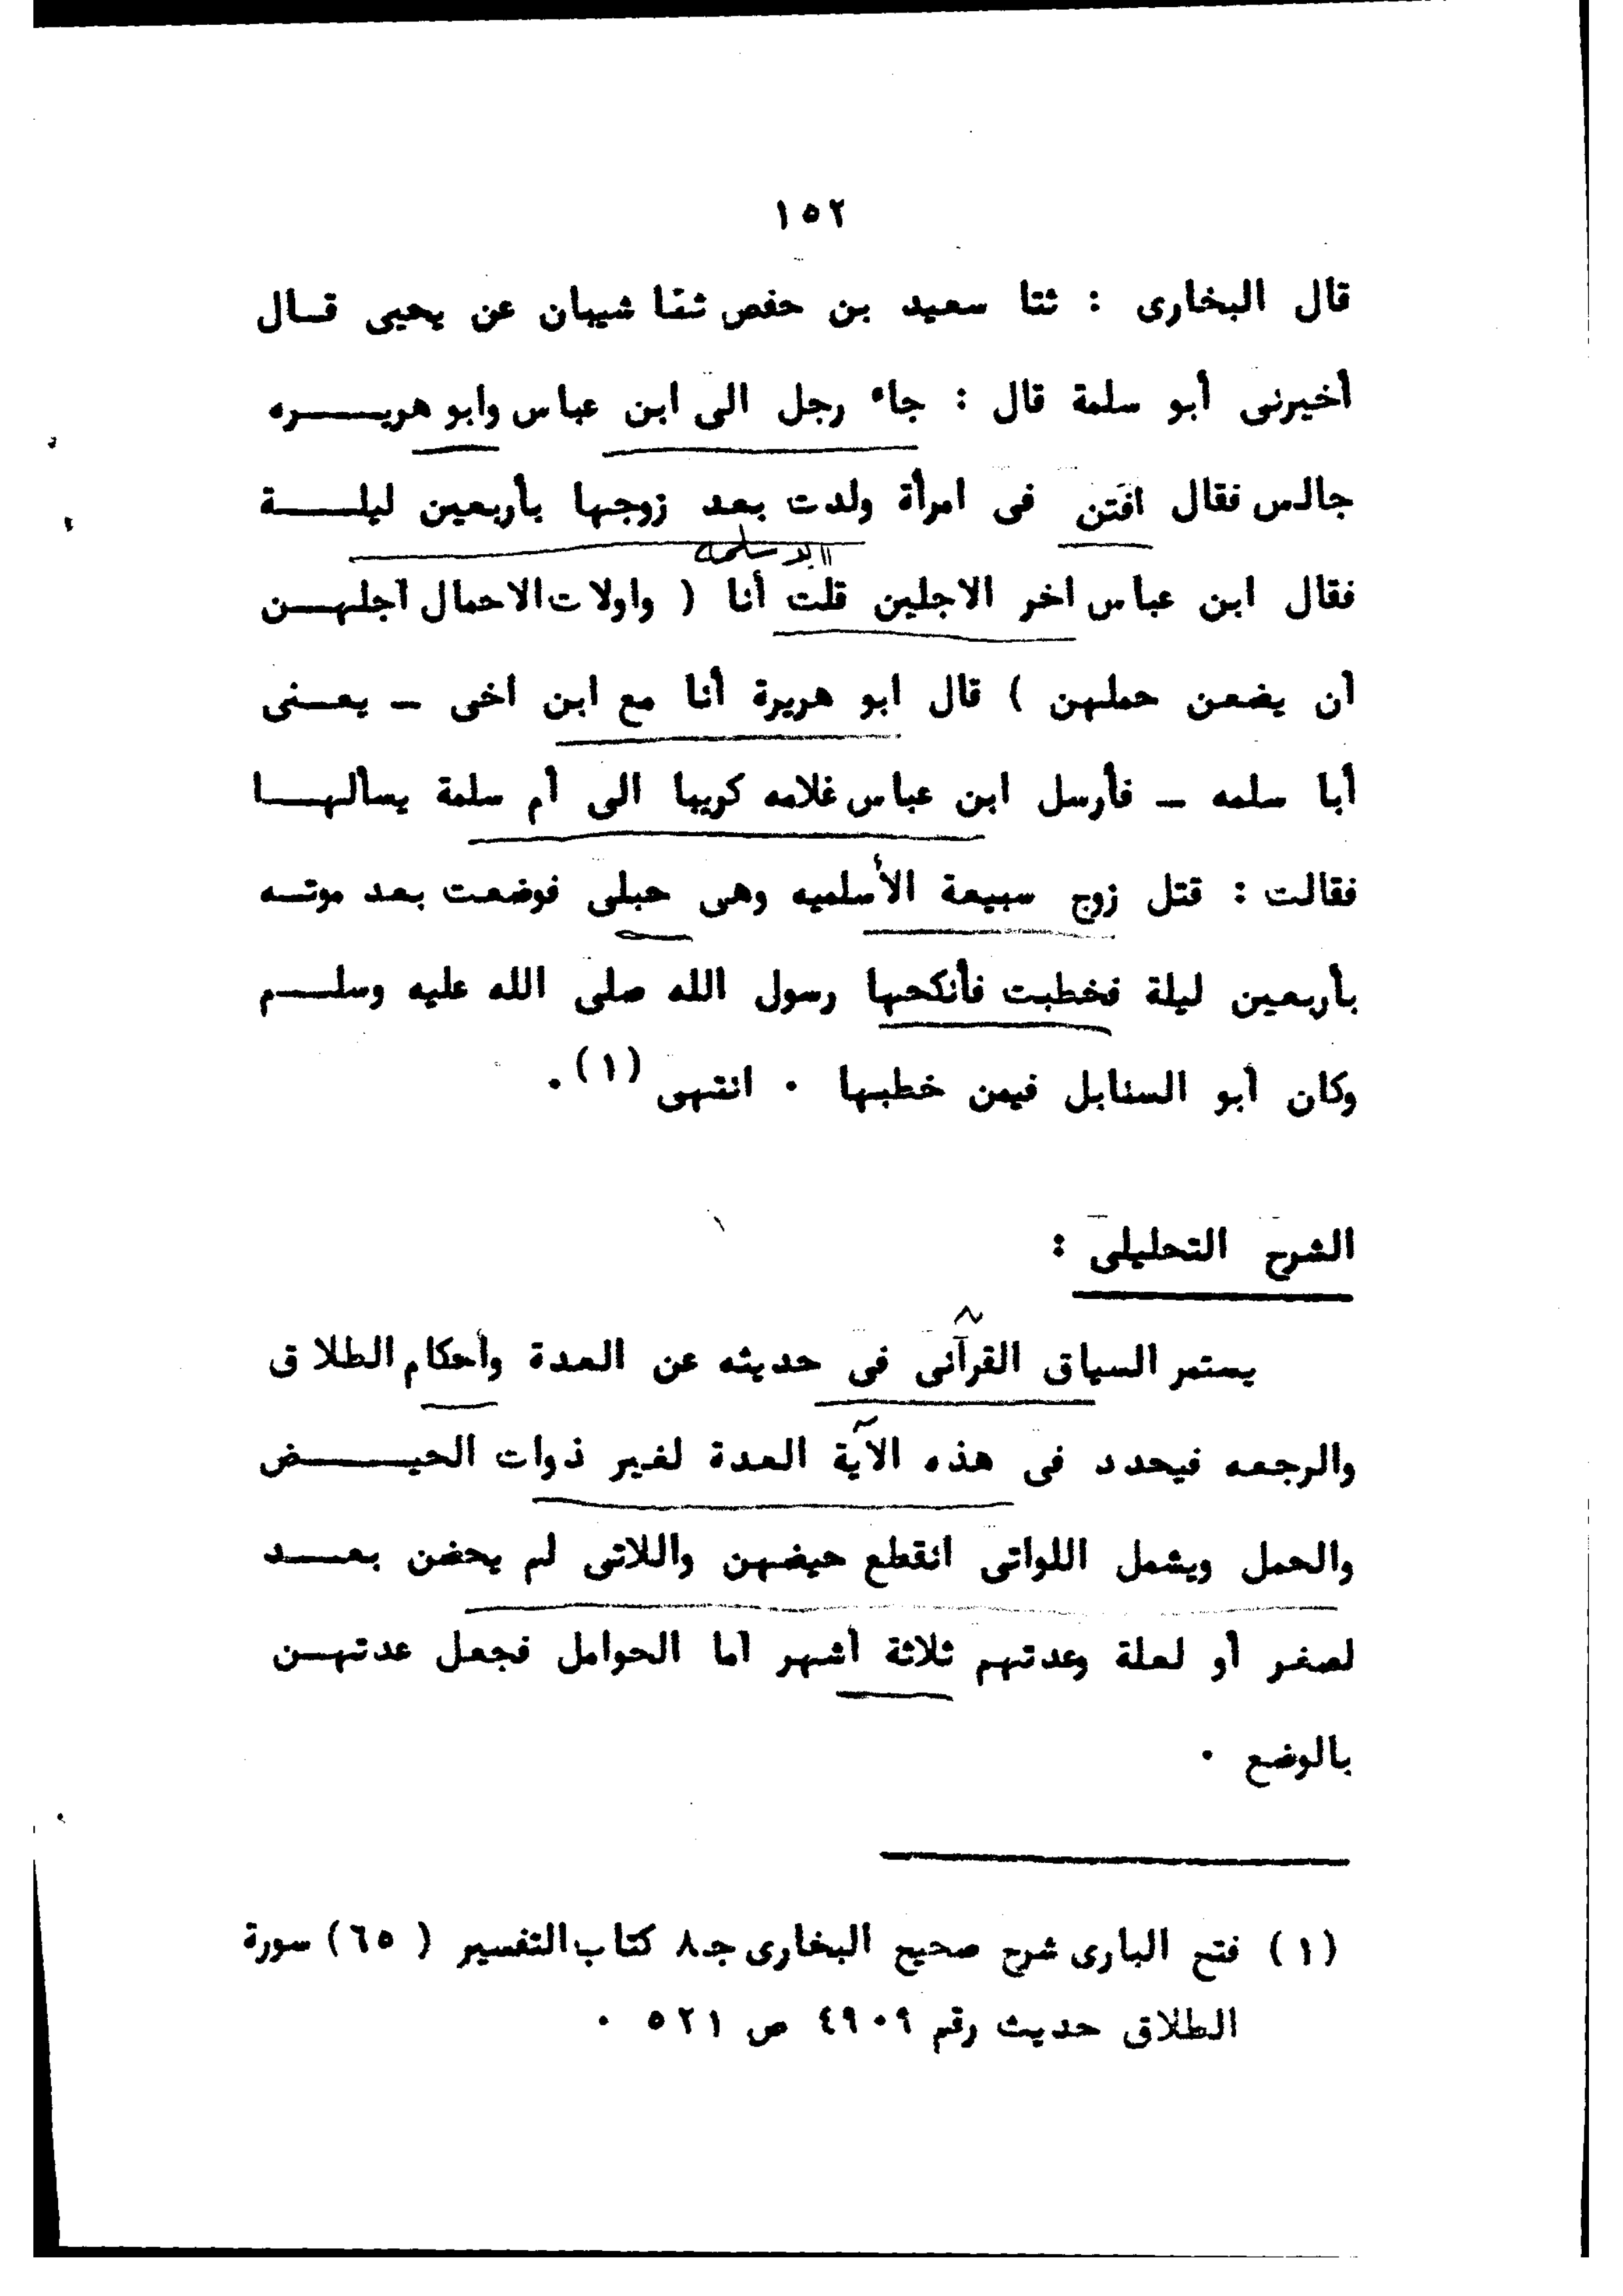 ١٥٢
قال البخارى : ثنا سعيد بن حفص ثنا شيبان عن يحيى قـال
أخبرنى أبو سلمة قال : جاء رجل الى ابن عباس وابو هريـــره
جالس فقال افتن فى امرأة ولدت بعد زوجها بأربعين ليلـــة
ابو سلمه
فقال ابن عباس اخر الاجلين قلت أنا ( واولات الاحمال أجلهـن
أن يضعن حملهن ) قال ابو هريرة أنا مع ابن اخى ــ يعـنى
أبا سلمه ــ فأرسل ابن عباس غلامه كريبا الى أم سلمة يسألهـا
فقالت : قتل زوج سبيعة الأسلميه وهى حبلى فوضعت بعد موتـه
بأربعين ليلة فخطبت فأنكحها رسول الله صلى الله عليه وسلـم
وكان أبو السنابل فيمن خطبها ٠ انتهى (١) ٠
الشرح التحليلى :
يستمر السياق القرآنى فى حديثه عن العدة وأحكام الطلاق
والرجعه فيحدد فى هذه الآية العدة لغير ذوات الحيـــض
والحمل ويشمل اللواتى انقطع حيضهن واللاتى لم يحضن بعـــد
لصغر أو لعلة وعدتهم ثلاثة أشهر أما الحوامل فجعل عدتهـن
بالوضع ٠
(١) فتح البارى شرح صحيح البخارى جـ٨ كتاب التفسير ( ٦٥) سورة
الطلاق حديث رقم ٤٩٠٩ ص ٥٢١ ٠